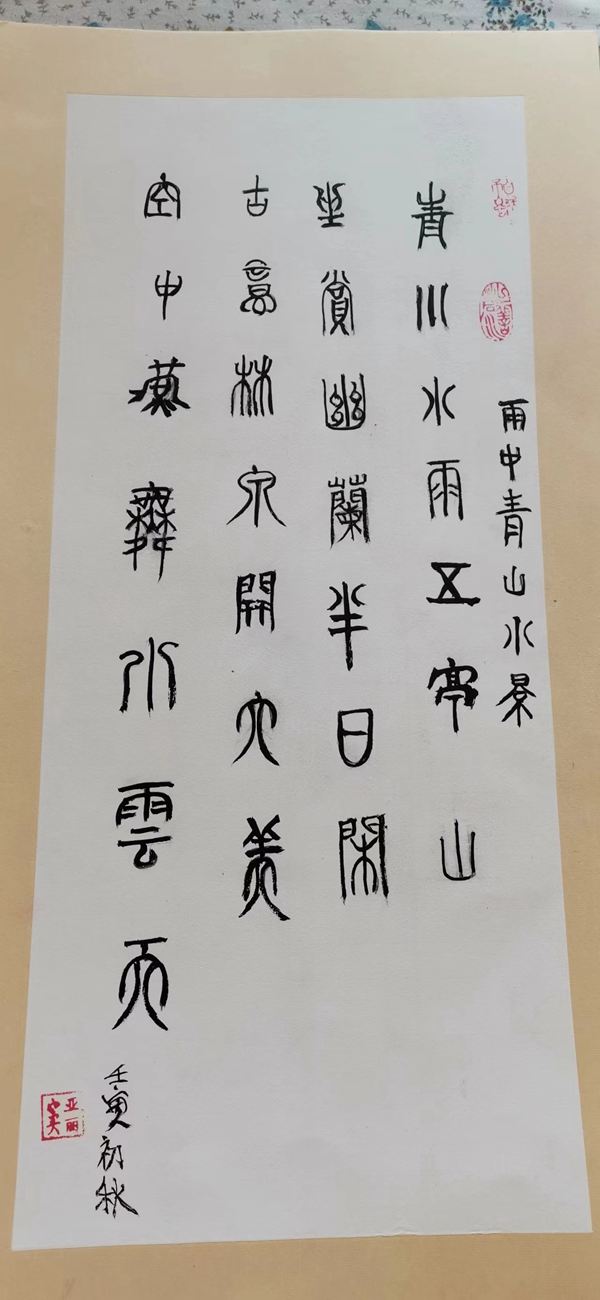 雨中青山水景
青川水雨五亭山
坐賞幽蘭半日閑
古意林泉開大美
空中燕舞水雲天
壬寅初秋
亚丽